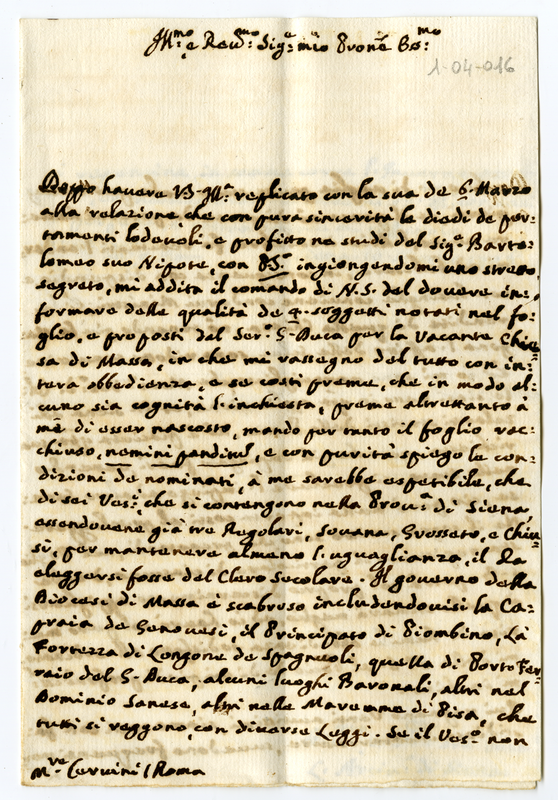 Ill:mo e Rev:mo Sig:e mio Prone Oss:mo
1-04-016
Doppo havere VS. Ill:ma replicato con la sua de 6. Marzo
alla relazione che con pura sincerità le diedi de por-
tamenti lodevoli, e profitto ne studi del Sig:e Barto-
lomeo suo Nipote, con ingiongendomi uno stretto
segreto, mi addita il comando di N.S. del dovere in-
formare delle qualità de 4. soggetti notati nel fo-
glio, e proposti dal Ser:o G. Duca per la Vacante Chie-
sa di Massa, in che mi rassegno del tutto con in-
tera obbedienza, e se costì preme, che in modo al-
cuno sia cognità l'inchiesta, preme altrettanto à
mè di esser nascosto, mando per tanto il foglio rac-
chiuso, nemini panditul, e con purità spiego le con-
dizioni de nominati, à me sarebbe espetibile, che
di sei Ves:i che si contengono nella Prov:a di Siena,
essendovene già tre Regolari, Souana, Grosseto, e Chiu-
si, per mantenere almeno l'uguaglianza, il da
eleggersi fosse del Clero secolare. Il governo della
Diocesi di Massa è scabroso includendovisi la Ca-
praia de Genovesi, il Principato di Piombino, La
Fortezza di Longone de Spagnuoli, quella di Porto Fer-
raio del G. Duca, alcuni luoghi Baronali, altri nel
Dominio Sanese, altri nelle Maremme di Pisa, che
tutti si reggono, con diverse Leggi. Se il Ves:o non
M:re Cervini / Roma